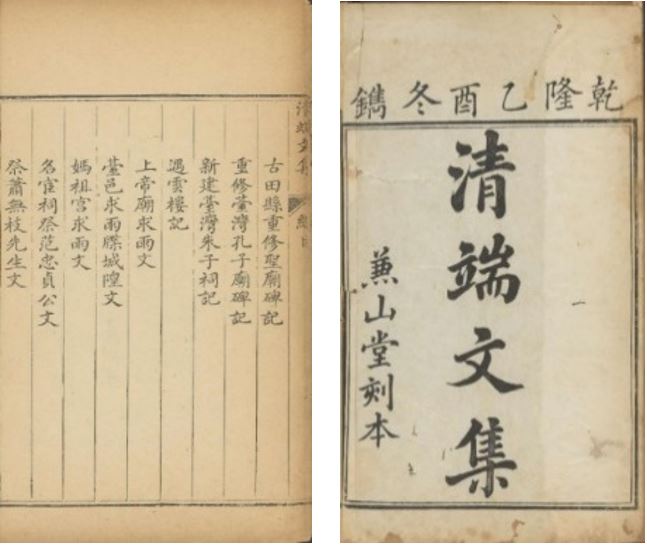 乾隆乙酉冬鐫
清端文集
兼山堂刻本
清端文集
古田縣重修聖廟碑記
重修臺灣孔子廟碑記
新建臺灣朱子祠記
遇雲樓記
上帝廟求雨文
臺邑求雨牒城隍文
媽祖宮求雨文
名宦祠祭范忠貞公文
祭蕭無枝先生文